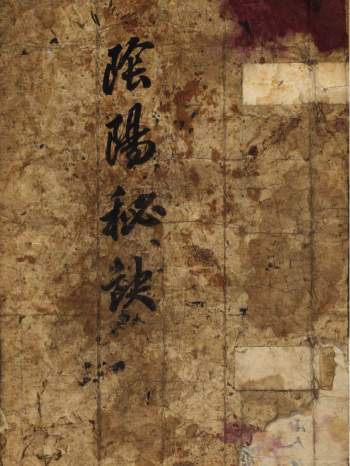 陰陽秘訣